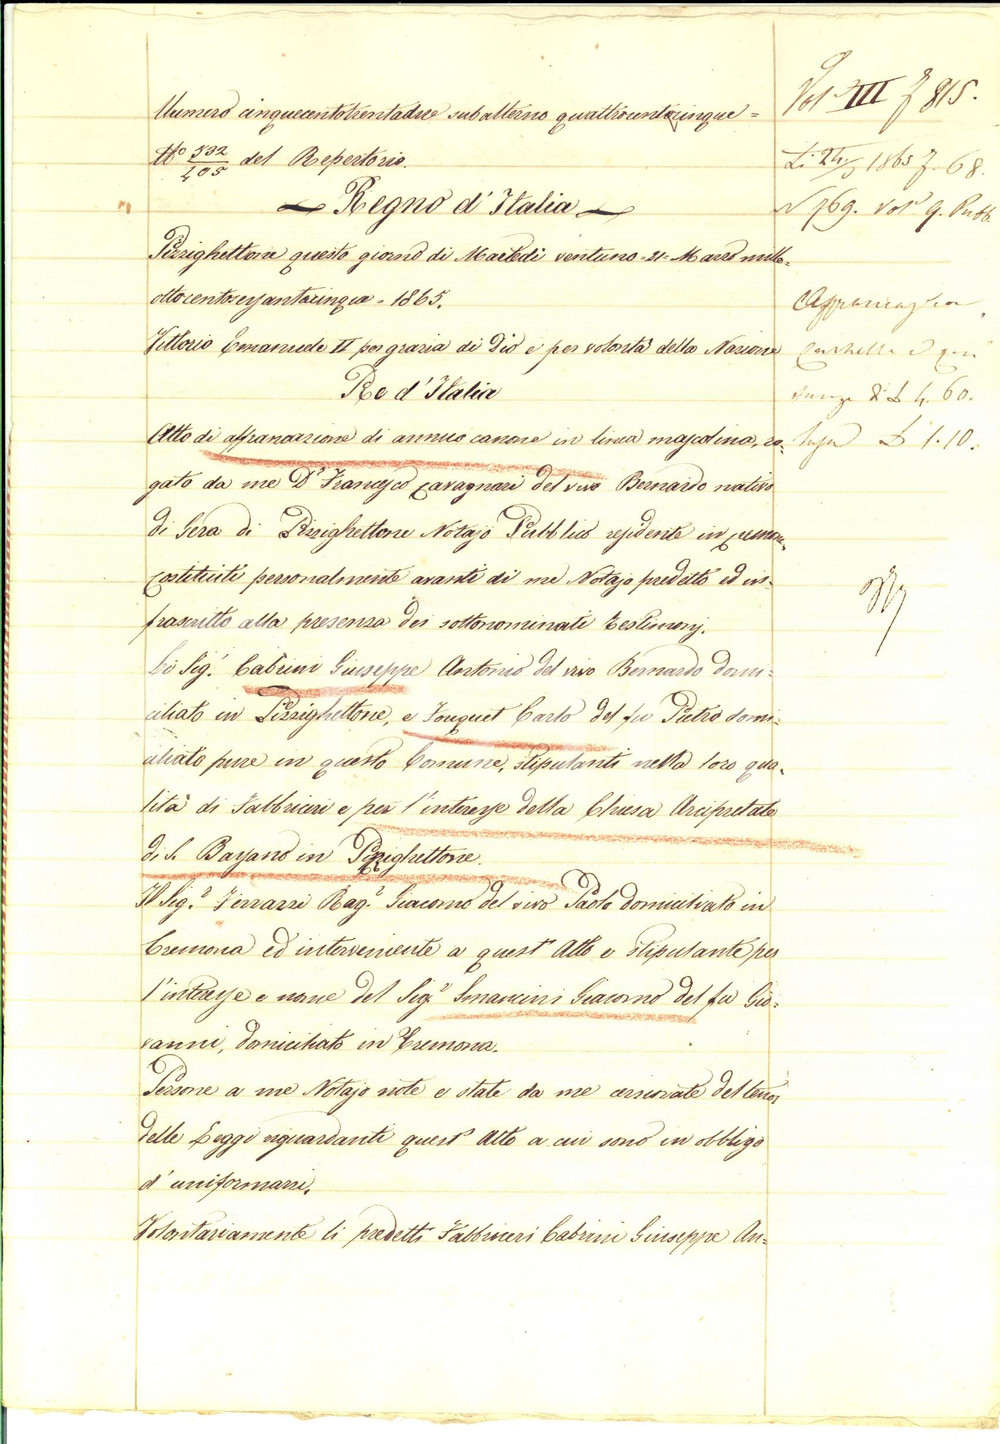 Numero cinquecentotrentadue subalterno quattrocentocinque =
No 532/405 del Repertorio.
Regno d'Italia
Pizzighettone questo giorno di Martedì ventuno - 21 - Marzo mille-
ottocentosessantacinque - 1865.
Vittorio Emanuele II per grazia di Dio e per volontà della Nazione
Re d'Italia
Atto di affrancazione di annuo canone in linea mascolina, ro-
gato da me Dr Francesco Cavagnari del vivo Bernardo nativo
di Gera di Pizzighettone Notajo Pubblico residente in
Costituiti personalmente avanti di me Notajo predetto ed in-
frascritto alla presenza dei sottonominati Testimonj.
Li Sig.i Cabrini Giuseppe Antonio del vivo Bernardo domi-
ciliato in Pizzighettone, e Fouquet Carlo del fu Pietro domi-
ciliato pure in questo Comune, stipulanti nella loro qua-
lità di Fabbricieri e per l'interesse della Chiesa Arcipretale
di S. Bassano in Pizzighettone.
Il Sig.r Ferrazzi Rag.r Giacomo del vivo Paolo domiciliato in
Cremona ed interveniente a quest'Atto e stipulante per
l'interesse e nome del Sig.r Smancini Giacomo del fu Gio-
vanni, domiciliato in Cremona.
Persone a me Notajo note e state da me cerziorate del tenor
delle Leggi riguardanti quest'Atto a cui sono in obbligo
d'uniformarsi.
Volontariamente li predetti Fabbricieri Cabrini Giuseppe An-
Vol. III f 815.
Li 24/3 1865 f. 68.
N 769. Vol. 9. Pubb.
Affrancazion
di L 4. 60.
tassa L 1. 10.